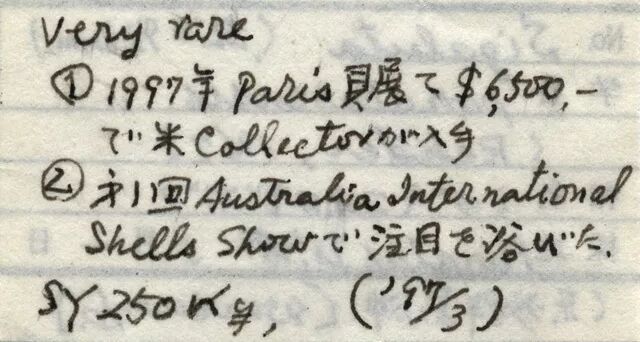 Very rare
① 1997年 Paris 貝展て $6,500.-
で 米 Collectorが入手
② 才1回 Australia International
Shells Showで 注目を浴いた.
SY 250K 
('97/3)